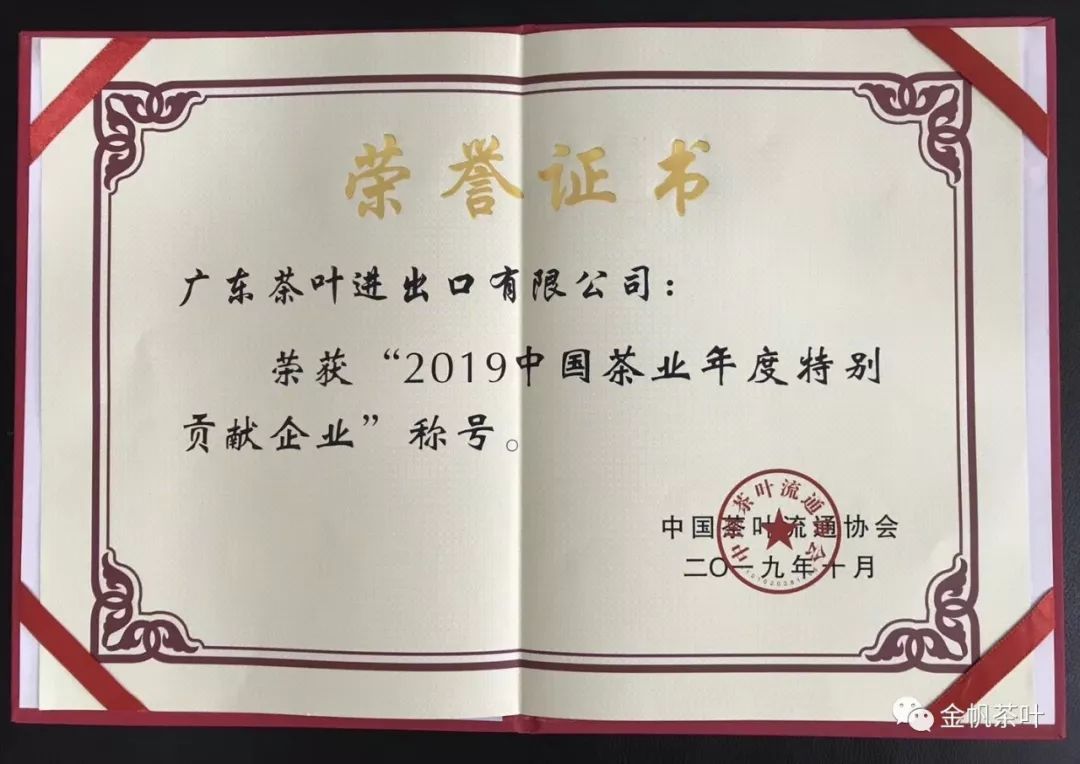 荣誉证书
广东茶叶进出口有限公司：
荣获“2019中国茶业年度特别
贡献企业”称号。
中国茶叶流通协会
二〇一九年十月
金帆茶叶